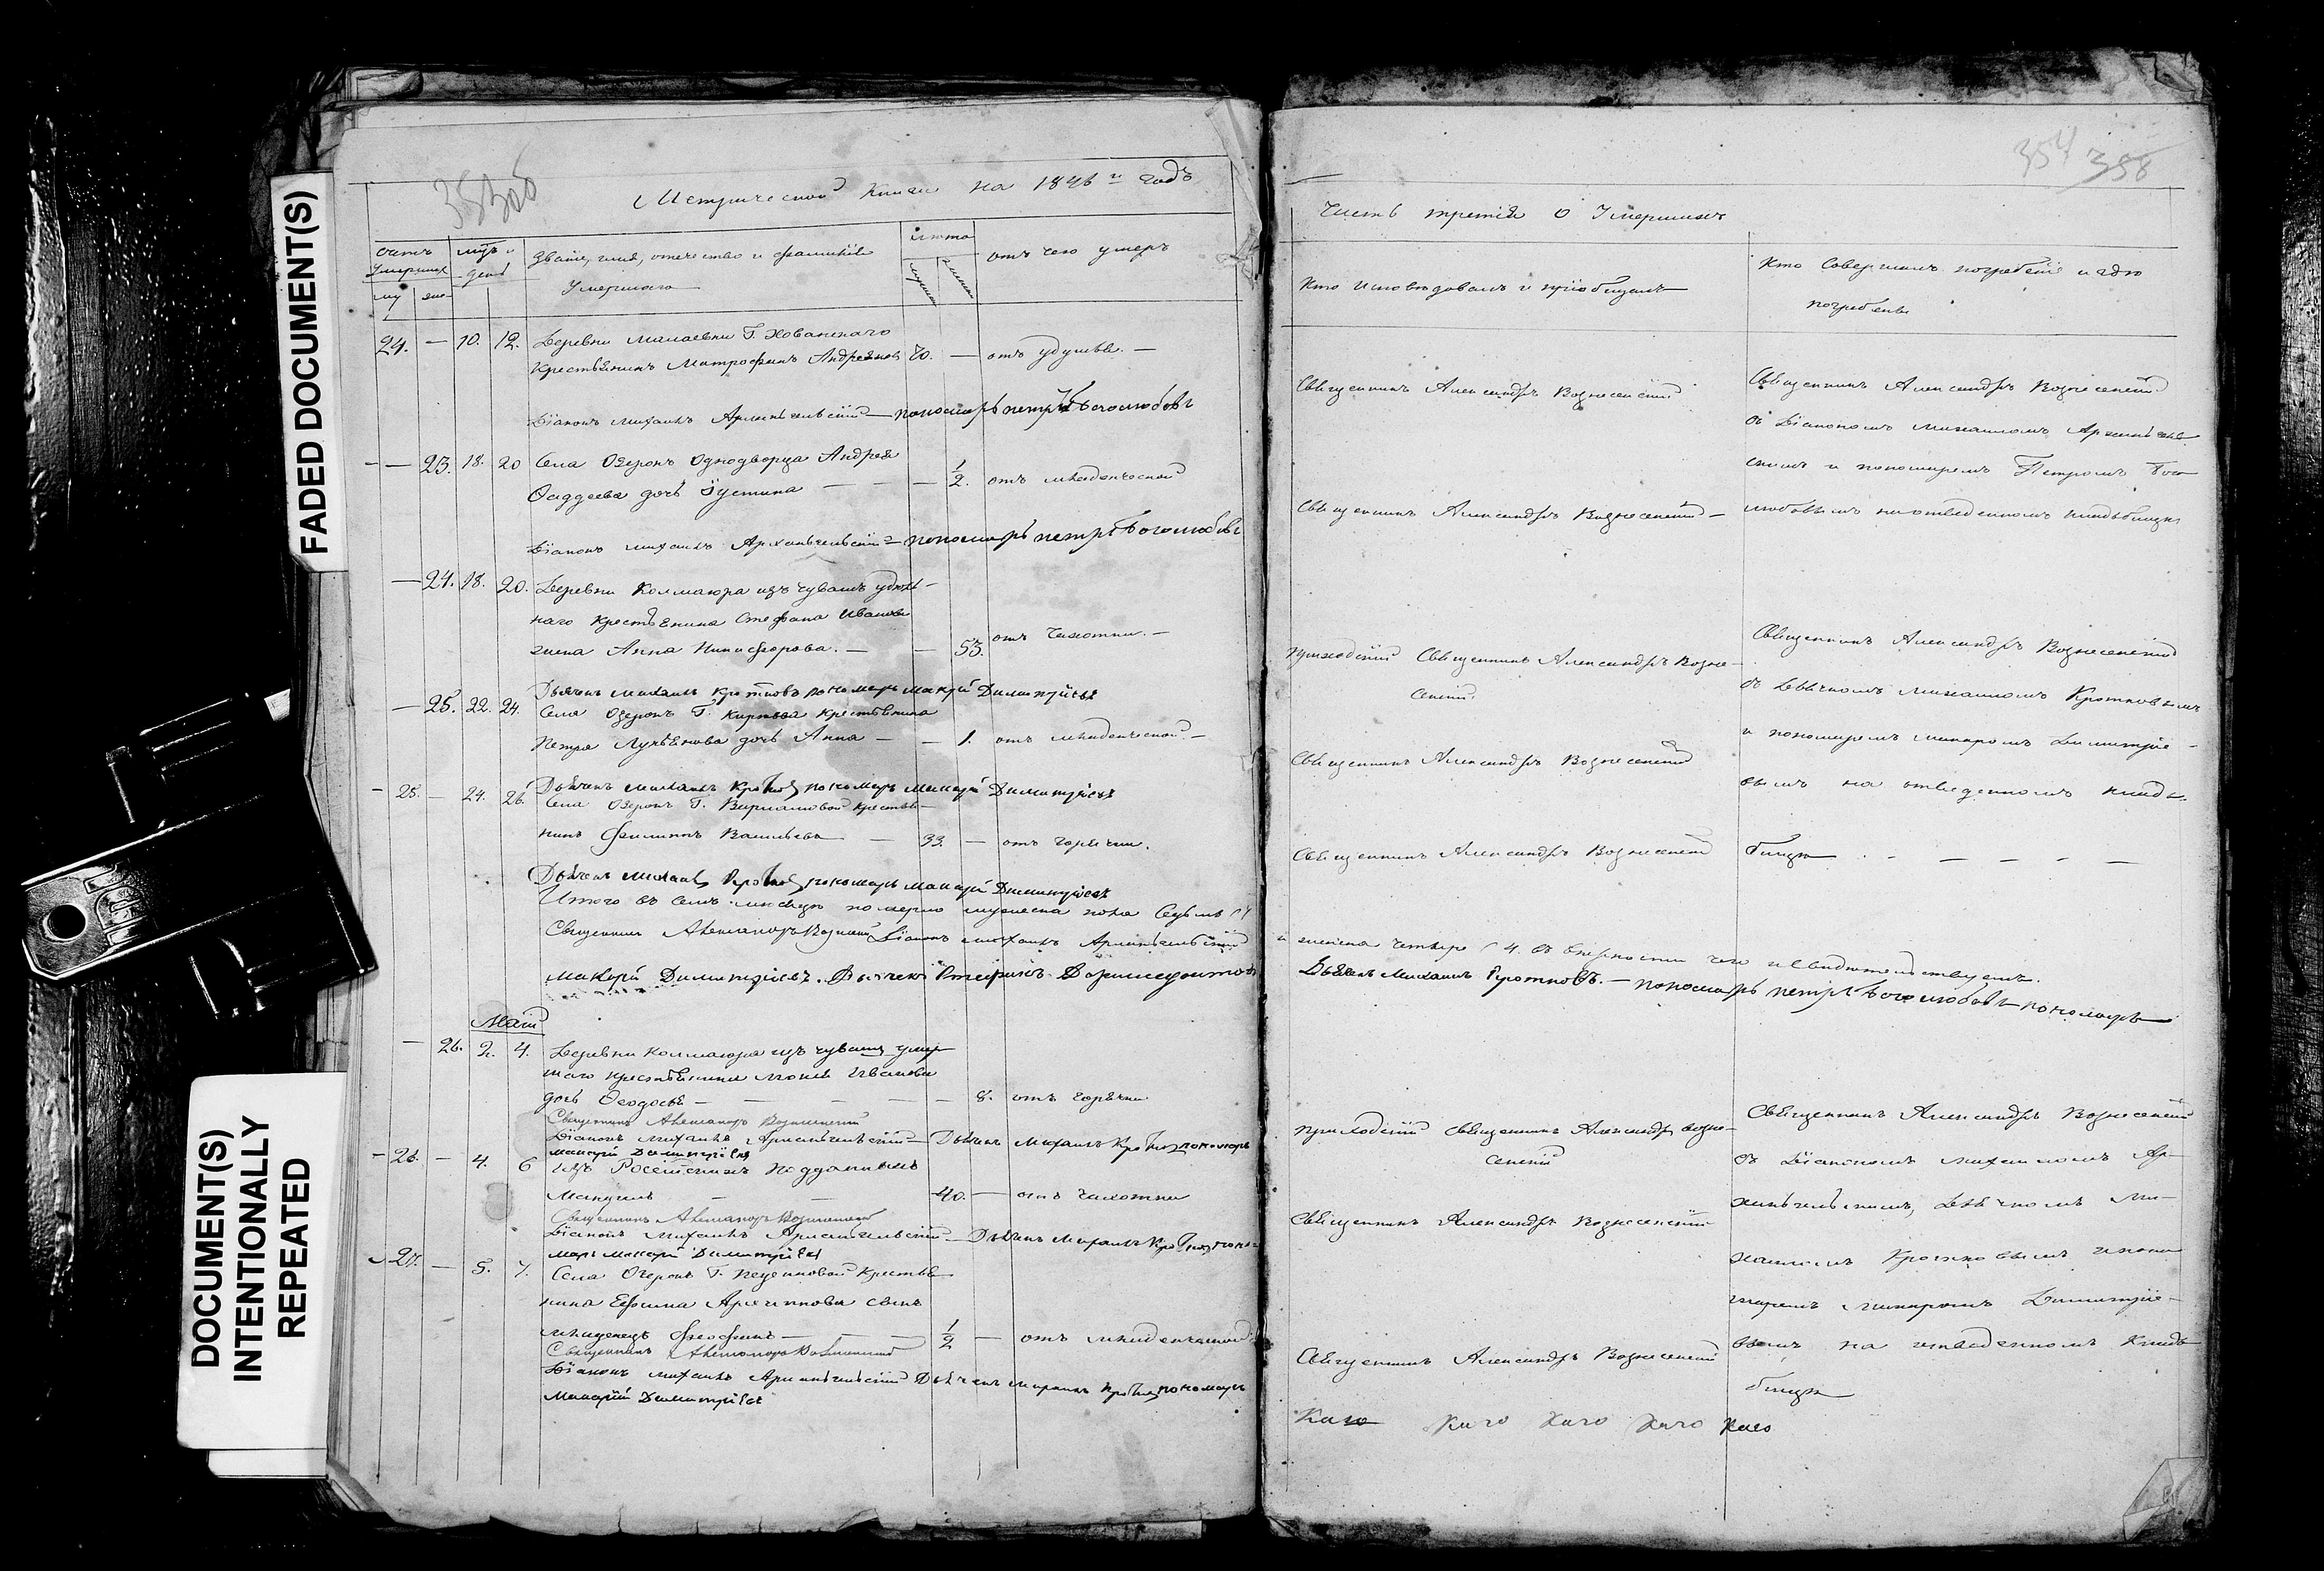 FADED DOCUMENT(S)
DOCUMENT(S)
INTENTIONALLY
REPEATED
353об
Метрической Книги на 1846 й годъ
счетъ умершихъ
му
же
день
Званіе, имя, отечество и фамилія
Умершаго
лета
отъ чего умеръ
24. — 10. 12. Деревни Малаевки Г. Хованскаго
Крестьянинъ Митрофанъ Андреяновъ 70. — отъ удушья. —
Діаконъ Михаилъ Архангельскій — пономарь петръ Боголюбовъ
— 23. 18. 20 Села Озерокъ Однодворца Андрея
Фаддеева дочь Іустина — — — 1/2. отъ младенческой
Діаконъ Михаилъ Архангельскій — пономарь петръ Боголюбовъ
— 24. 18. 20. Деревни Колмаюра изъ чувашъ удѣль-
наго крестьянина Стефана Иванова
жена Анна Никифорова. — — 53. отъ чахотки. —
Дьячекъ Михаилъ Кротковъ пономарь Макарій Димитріевъ
— 25. 22. 24. Села Озерокъ Г. крестьянина
Петра Лукьянова дочь Анна — — 1. отъ младенческой. —
Дьячекъ Михаилъ Кротковъ пономарь Макарій Димитріевъ
— 25. — 24. 26. Села Озерокъ Г. крестья-
нинъ Филиппъ Васильевъ — 33. — отъ горячки.
Дьячекъ Михаилъ Кротковъ пономарь Макарій Димитріевъ
Итого въ семъ месяце померло мужеска пола Седмь (7
Священникъ Александръ Вознесенскій Діаконъ Михаилъ Архангельскій
Макарій Димитріевъ. Дьячекъ
Маій
— 26. 2. 4. Деревни Колмаюра изъ чувашъ умер-
шаго крестьянина Иванова
дочь Феодосья — — — — 8. отъ горячки
Священникъ Александръ Вознесенскій
Діаконъ Михаилъ Архангельскій — Дьячекъ Михаилъ Кротковъ пономарь
Макарій Димитріевъ
— 26. — 4. 6 изъ Россійскихъ подданныхъ
— — 40. — отъ чахотки
Священникъ Александръ Вознесенскій
Діаконъ Михаилъ Архангельскій — Дьячекъ Михаилъ Кротковъ поно-
марь Макарій Димитріевъ
27. — 5. 7. Села Озерокъ Г. крестья-
нина Ефима Архипова сынъ
младенецъ — — 1/2 — отъ младенческой
Священникъ Александръ Вознесенскій
Діаконъ Михаилъ Архангельскій Дьячекъ Михаилъ Кротковъ пономарь
Макарій Димитріевъ
354 358
Часть третія о Умершихъ
Кто исповѣдовалъ и пріобщалъ
Кто Совершалъ погребеніе и гдѣ
погребены
Священникъ Александръ Вознесенскій
Священникъ Александръ Вознесенскій —
приходскій Священникъ Александръ Возне-
сенскій
Священникъ Александръ Вознесенскій
Священникъ Александръ Вознесенскій
Священникъ Александръ Вознесенскій
съ Діакономъ Михаиломъ Архангель-
скимъ и пономаремъ Петромъ Бого
любовымъ на отведенномъ кладбищѣ
Священникъ Александръ Вознесенскій
съ Дьячкомъ Михаиломъ Кротковымъ
и пономаремъ Макаромъ Димитріе-
вымъ на отведенномъ клад-
бищѣ . - — — — —
и женска четыре (4. въ верности чего и свидетельствуемъ.
Дьячекъ Михаилъ Кротковъ. — пономарь петръ Боголюбовъ — пономарь
приходскій священникъ Александръ возне-
сенскій
Священникъ Александръ Вознесенскій
Священникъ Александръ Вознесенскій
Священникъ Александръ Вознесенскій
съ Діакономъ Михаиломъ Ар-
хангельскимъ, Дьячкомъ Ми-
хаиломъ Кротковымъ и поно
маремъ Макаромъ Димитріе-
вымъ на отведенномъ Клад
бищѣ
Каго Каго Каго Каго Каго